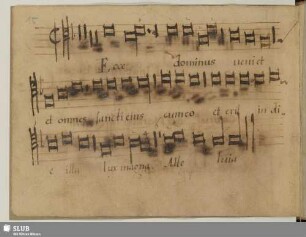 Ecce Dominus veniet
et omnes sancti eius cum eo et erit in di
e illa lux magna Alle luia
SLUB